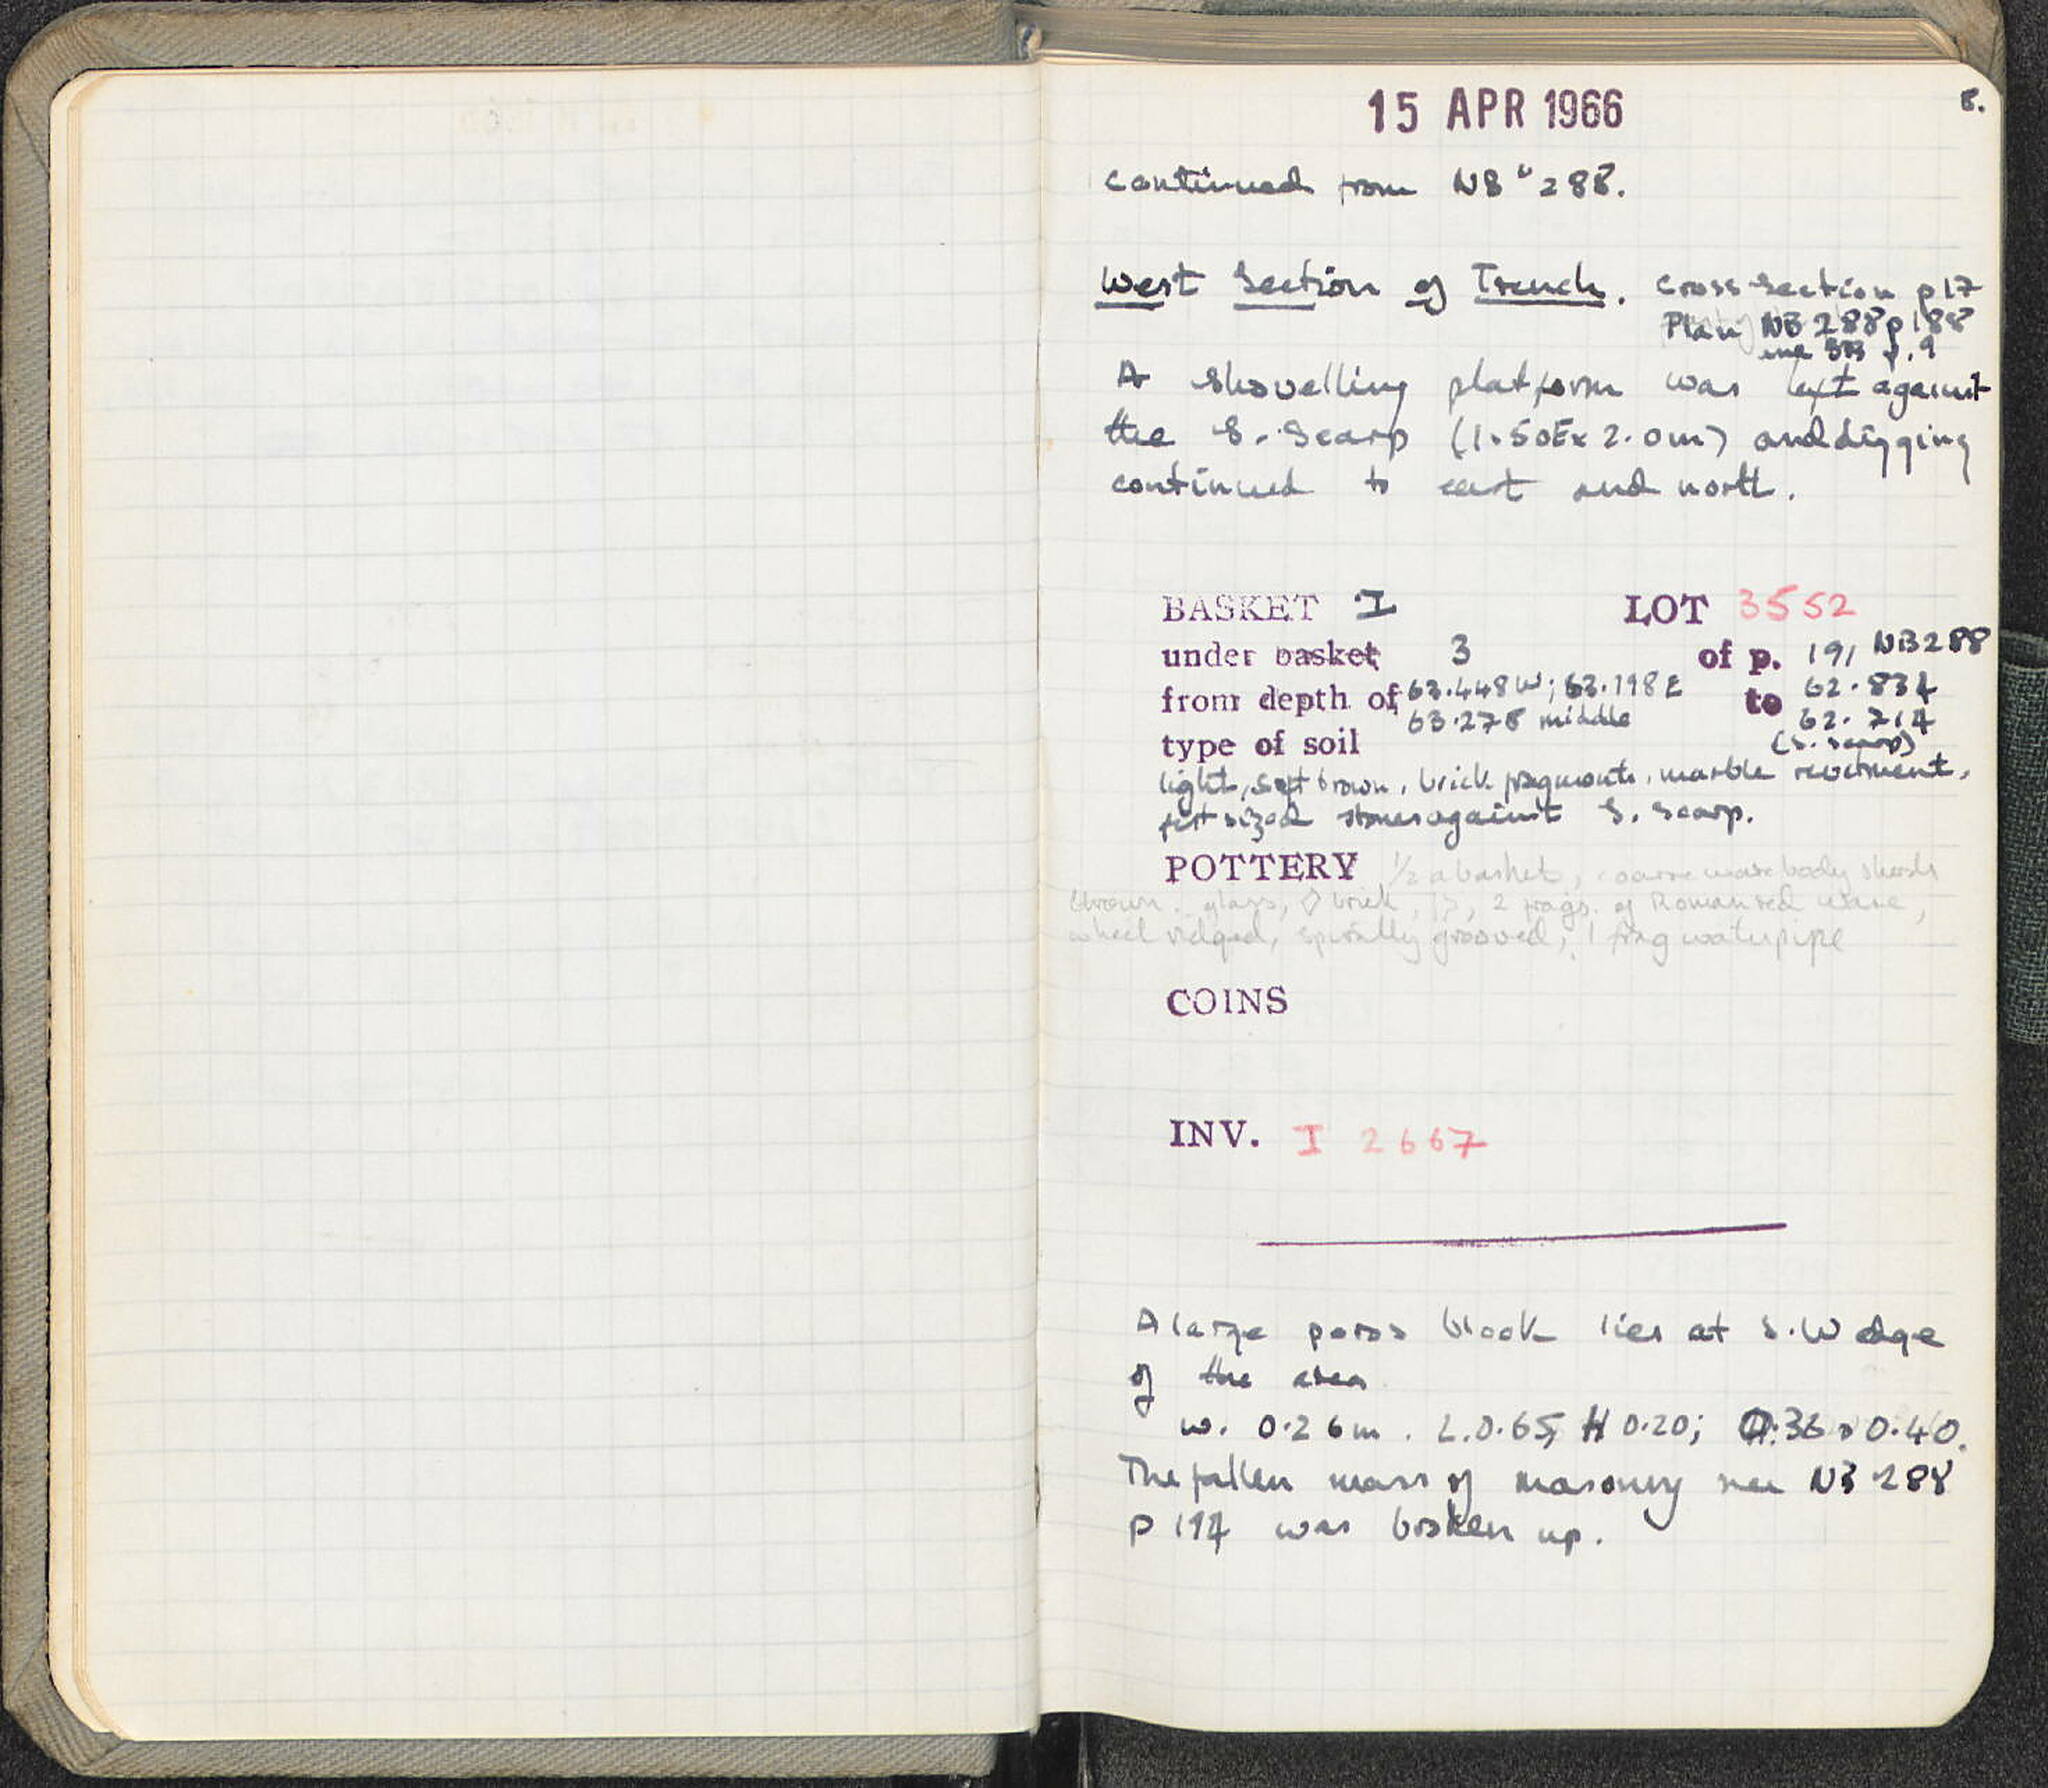 15 APR 1966
8.
continued from NB " 288.
West Section of Trench. Cross-section p 17
Plan NB 288 p 188
p. 9
A shovelling platform was left against
the S. Scarp (1.50E x 2.0m) and digging
continued to east and north.
BASKET I LOT 3552
under basket 3 of p. 191 NB 288
from depth of 63.448 W; 63.198 E to 62.834
63.278 middle 62.714
type of soil (S. scarp)
light, soft brown, brick fragments, marble revetment,
fist sized stones against S. scarp.
POTTERY 1/2 a basket, coarse ware body sherds
brown. glass, ◊ brick, 2 frags. of Roman red ware,
wheel ridged, spirally grooved, 1 frag waterpipe
COINS
INV. I 2667
A large poros block lies at S.W edge
of the area
w. 0.26m. L. 0.65, H 0.20; 0.36 x 0.40.
The fallen mass of masonry see NB 288
p 194 was broken up.